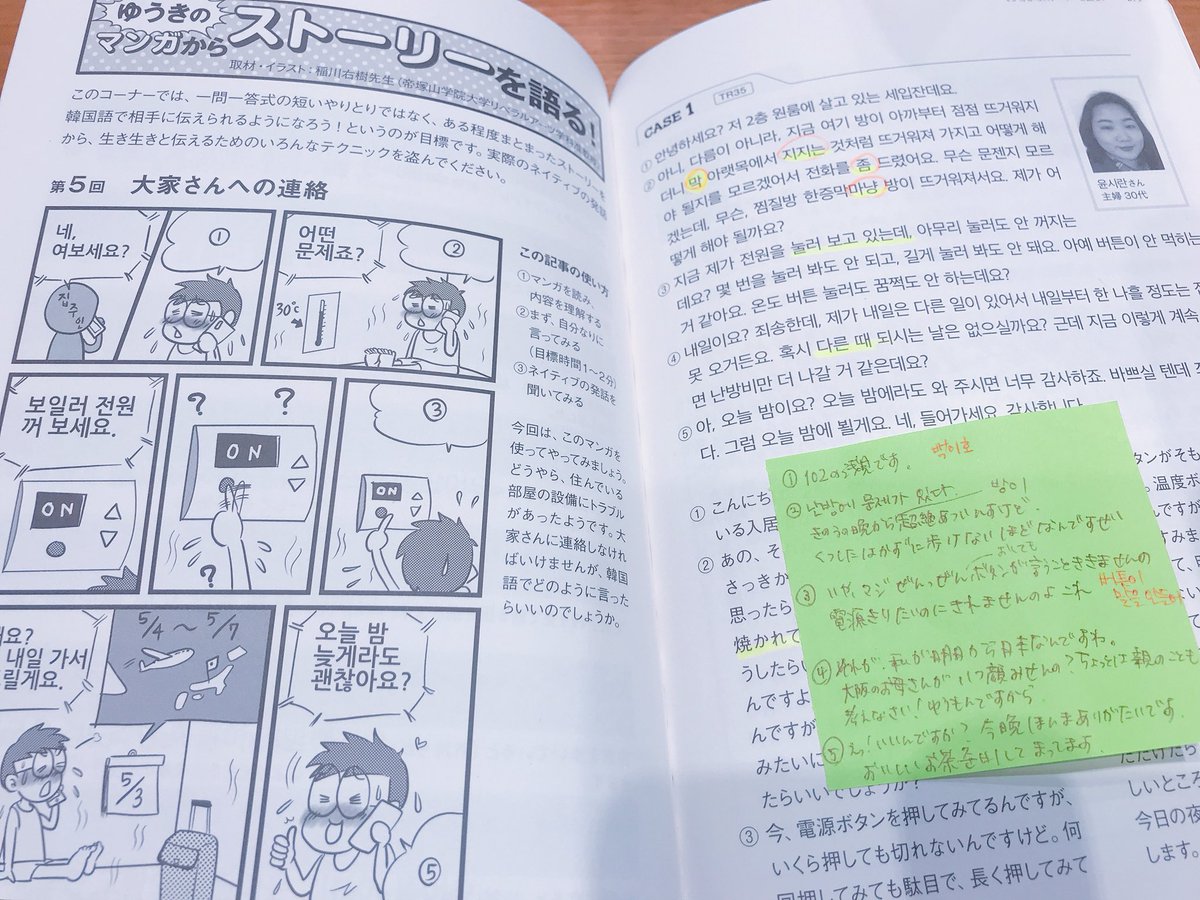 ゆうきの
マンガから
ストーリーを語る!
取材・イラスト:稲川右樹先生(帝塚山学院大学リベラルアーツ学科准教授)
このコーナーでは、一問一答式の短いやりとりではなく、ある程度まとまったストーリーを
韓国語で相手に伝えられるようになろう!というのが目標です。実際のネイティブの発話
から、生き生きと伝えるためのいろんなテクニックを盗んでください。
第5回 大家さんへの連絡
네,
여보세요?
집주인
①
어떤
문제죠?
②
30℃
보일러 전원
꺼 보세요.
ON
?
?
ON
?
③
ON
요?
내일 가서
릴게요.
5/4 〜 5/7
5/3
오늘 밤
늦게라도
괜찮아요?
⑤
この記事の使い方
①マンガを読み、
内容を理解する
②まず、自分なりに
言ってみる
(目標時間1〜2分)
③ネイティブの発話を
聞いてみる
今回は、このマンガを
使ってやってみましょう。
どうやら、住んでいる
部屋の設備にトラブル
があったようです。大
家さんに連絡しなけれ
ばいけませんが、韓国
語でどのように言った
らいいのでしょうか。
CASE 1
TR35
① 안녕하세요? 저 2층 원룸에 살고 있는 세입잔데요.
② 아니, 다름이 아니라, 지금 여기 방이 아까부터 점점 뜨거워지
더니 막 아랫목에서 지지는 것처럼 뜨거워져 가지고 어떻게 해
야 될지를 모르겠어서 전화를 좀 드렸어요. 무슨 문젠지 모르
겠는데, 무슨, 찜질방 한증막마냥 방이 뜨거워져서요. 제가 어
떻게 해야 될까요?
③ 지금 제가 전원을 눌러 보고 있는데, 아무리 눌러도 안 꺼지는
데요? 몇 번을 눌러 봐도 안 되고, 길게 눌러 봐도 안 돼요. 아예 버튼이 안 먹히는
거 같아요. 온도 버튼 눌러도 꿈쩍도 안 하는데요?
④ 내일이요? 죄송한데, 제가 내일은 다른 일이 있어서 내일부터 한 나흘 정도는
못 오거든요. 혹시 다른 때 되시는 날은 없으실까요? 근데 지금 이렇게 계속
면 난방비만 더 나갈 거 같은데요?
⑤ 아, 오늘 밤이요? 오늘 밤에라도 와 주시면 너무 감사하죠. 바쁘실 텐데
다. 그럼 오늘 밤에 뵐게요. 네, 들어가세요. 감사합니다.
윤시란さん
主婦 30代
① こんにち
いる入居
② あの、そ
さっきか
思ったら
焼かれて
うしたらい
んですよ
んですが
みたいに
たらいいでしょうか?
③ 今、電源ボタンを押してみてるんですが、
いくら押しても切れないんですけど。何
回押してみても駄目で、長く押してみて
① 102の 親です。
백이호
② 난방이 문제가 있다. 방이
きのうの晩から超絶あついんすけど。
くつしたはかずに歩けないほどなんですぜい
③ いや、マジぜんっぜんボタンが言うことききませんの
おしても
電源きりたいのにきれませんのよ これ
버튼이
말을 안들어
④ それが、私が明日から日本なんですわ。
大阪のお母さんがいつ顔みせんの?ちょっとは親のことも
考えなさい!ゆうもんですから
⑤ えっ!いいんですか?今晩ほんまありがたいです。
おいしいお茶準備してまってます.
タンがそも
。温度ボ
ただけたら
しいところ
今日の夜
します。